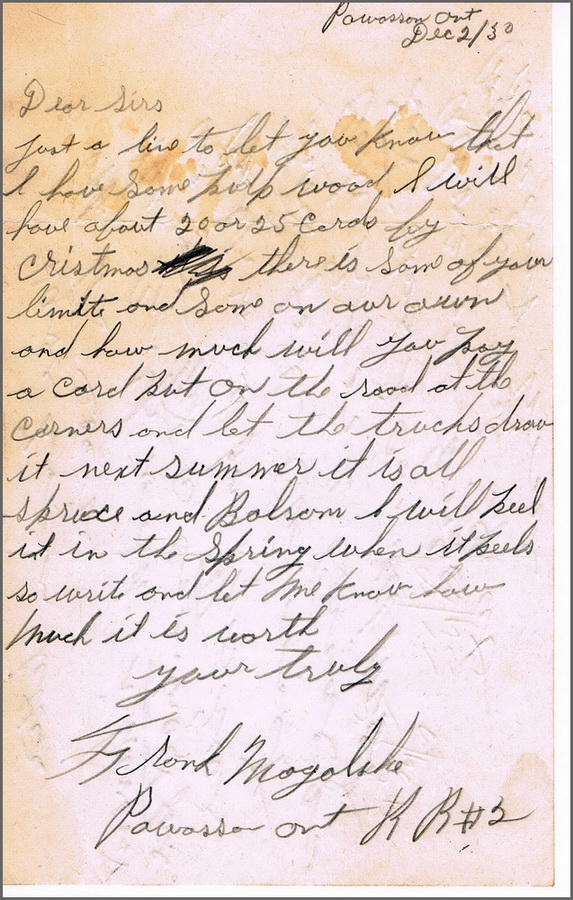 Powasson Ont
Dec 2/30
Dear Sirs
just a line to let you know that
I have some pulp wood I will
have about 20 or 25 Cords by
Cristmas there is some of your
limite and some on our own
and how much will you pay
a cord put on the road at the
corners and let the trucks draw
it next summer it is all
spruce and Bolsom I will peel
it in the Spring when it peels
so write and let me know how
much it is worth
your truly
Frank Mogolske
Powasson ont R R #2